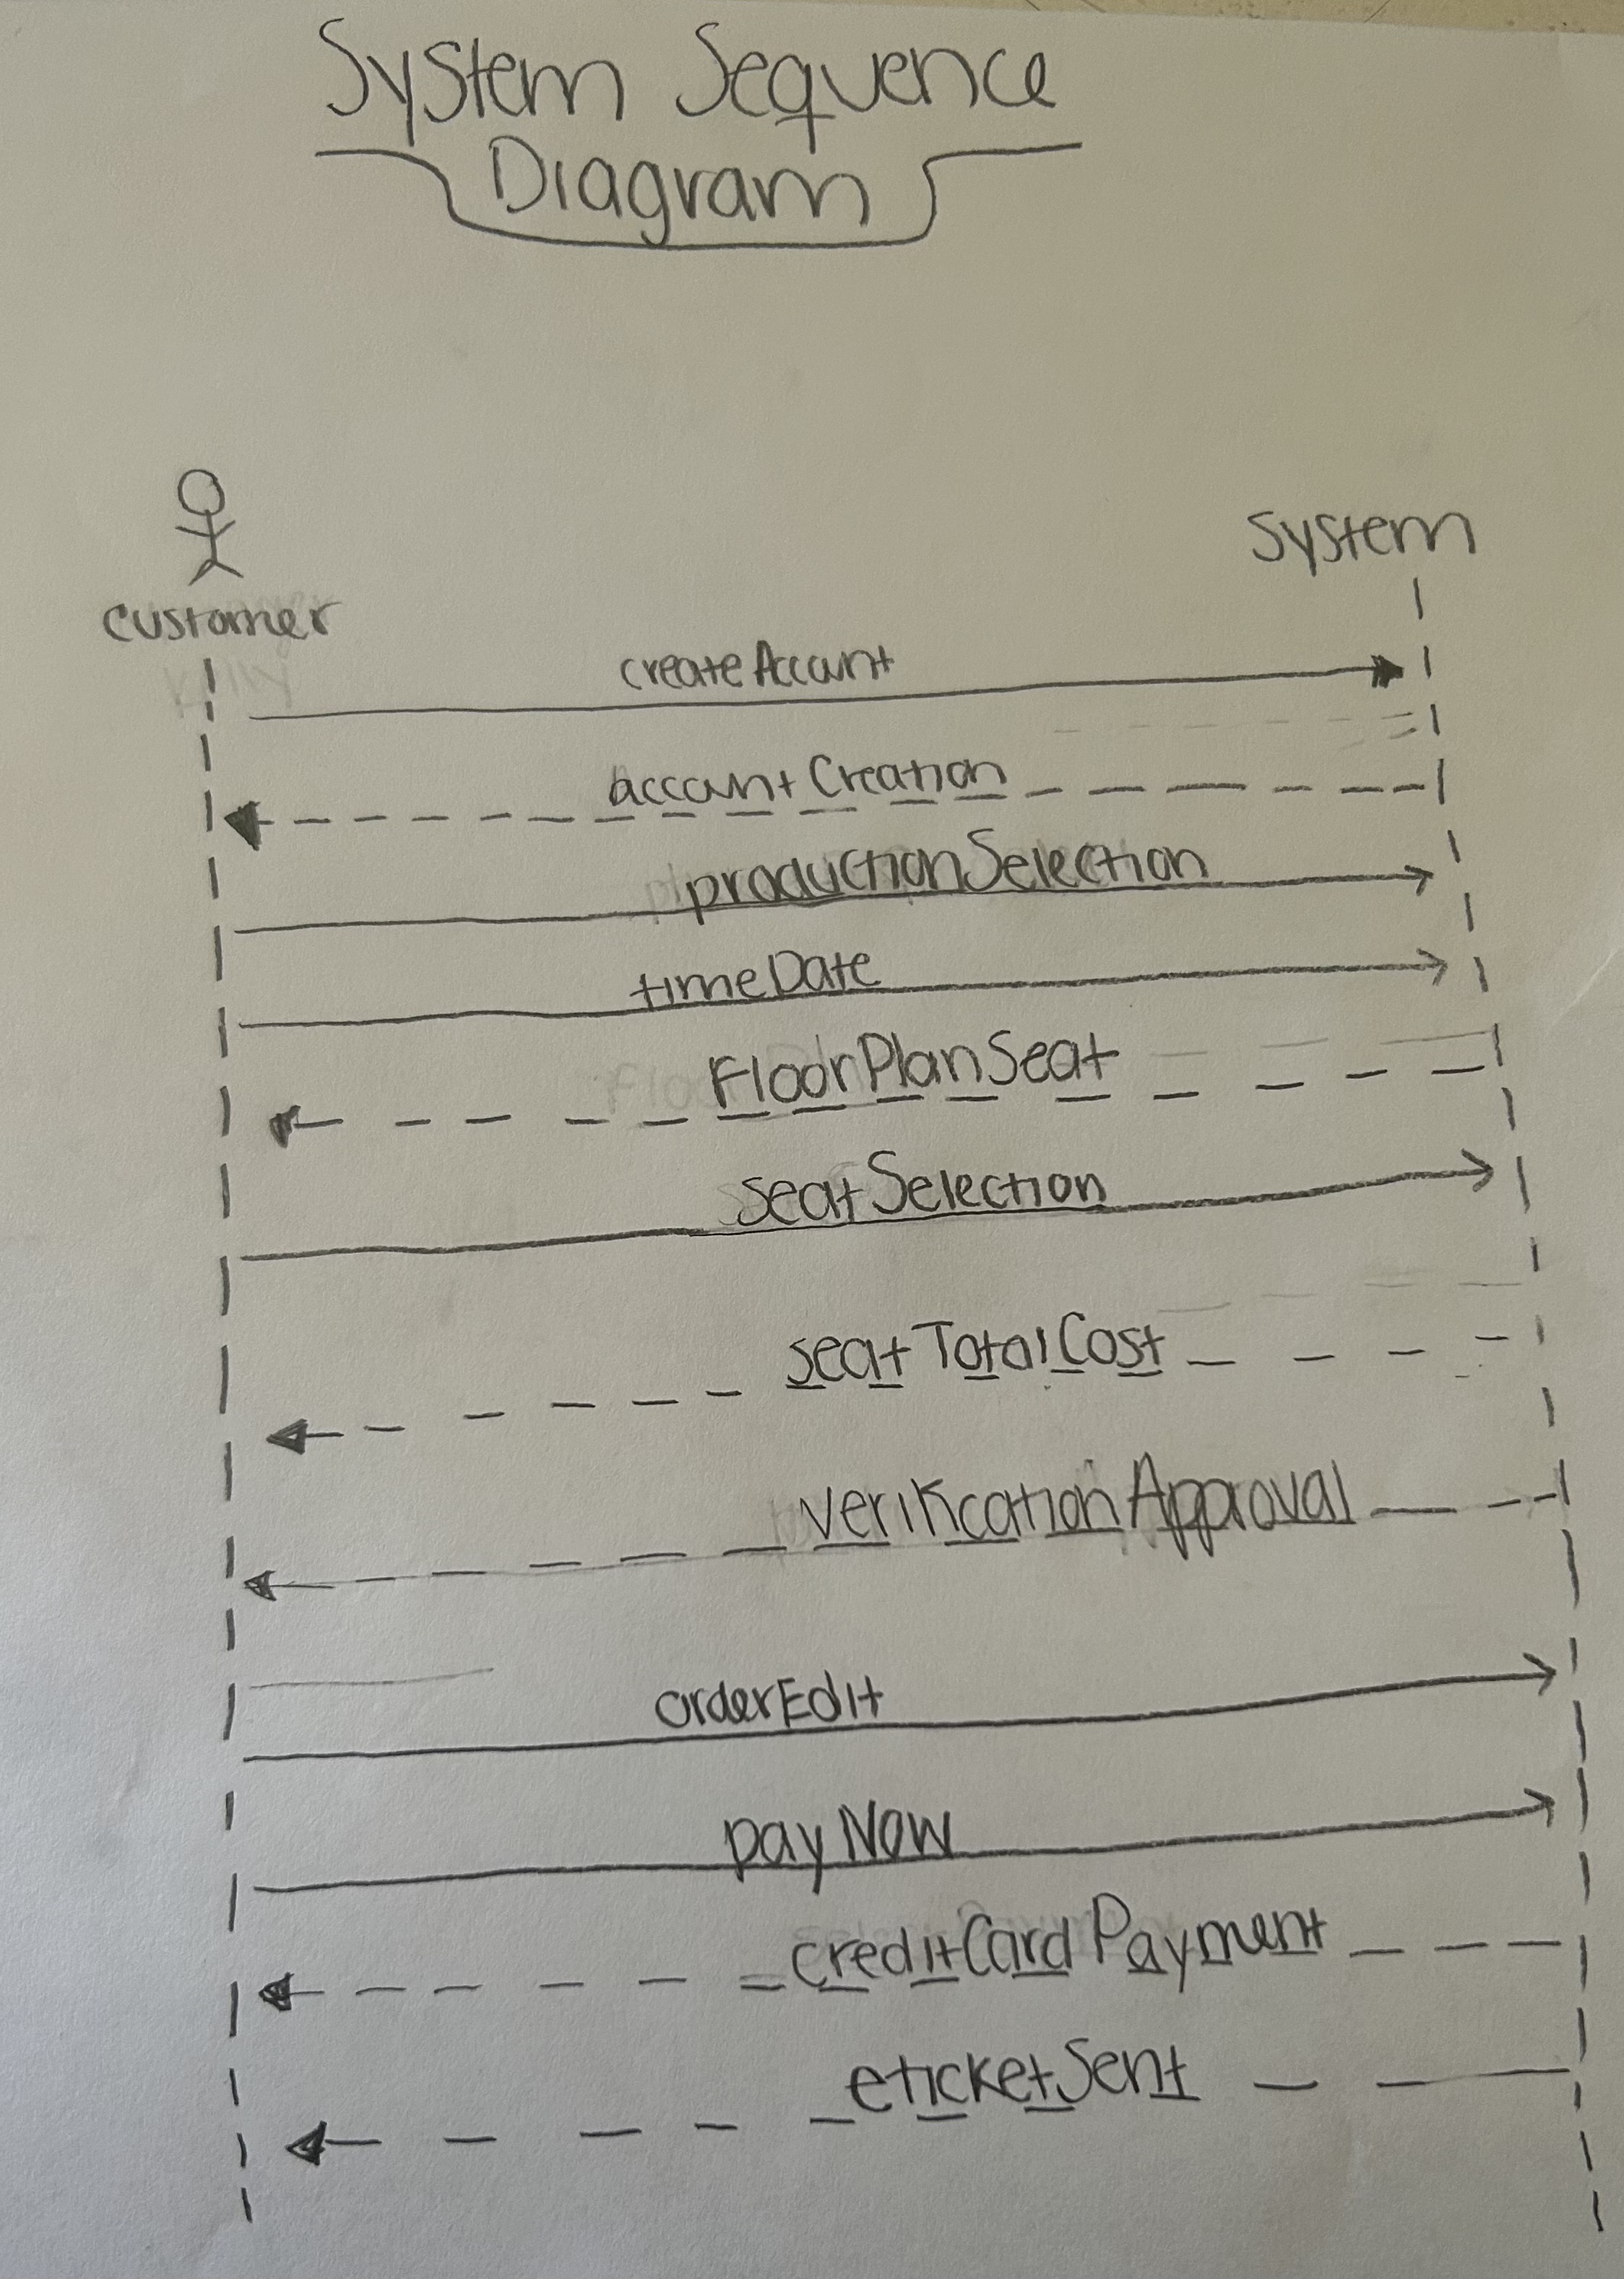 System Sequence
Diagram
System
customer
createAccount
accountCreation
productionSelection
timeDate
FloorPlanSeat
seatSelection
seatTotalCost
verificationApproval
orderEdit
payNow
creditCardPayment
eticketSent